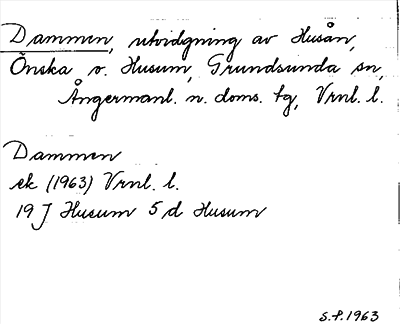 Dammen, utvidgning av Husån,
Önska v. Husum, Grundsunda sn,
Ångermanl. n. doms. tg, Vrnl. l.
Dammen
ek (1963) Vrnl. l.
19 J Husum 5 d Husum
S.F. 1963